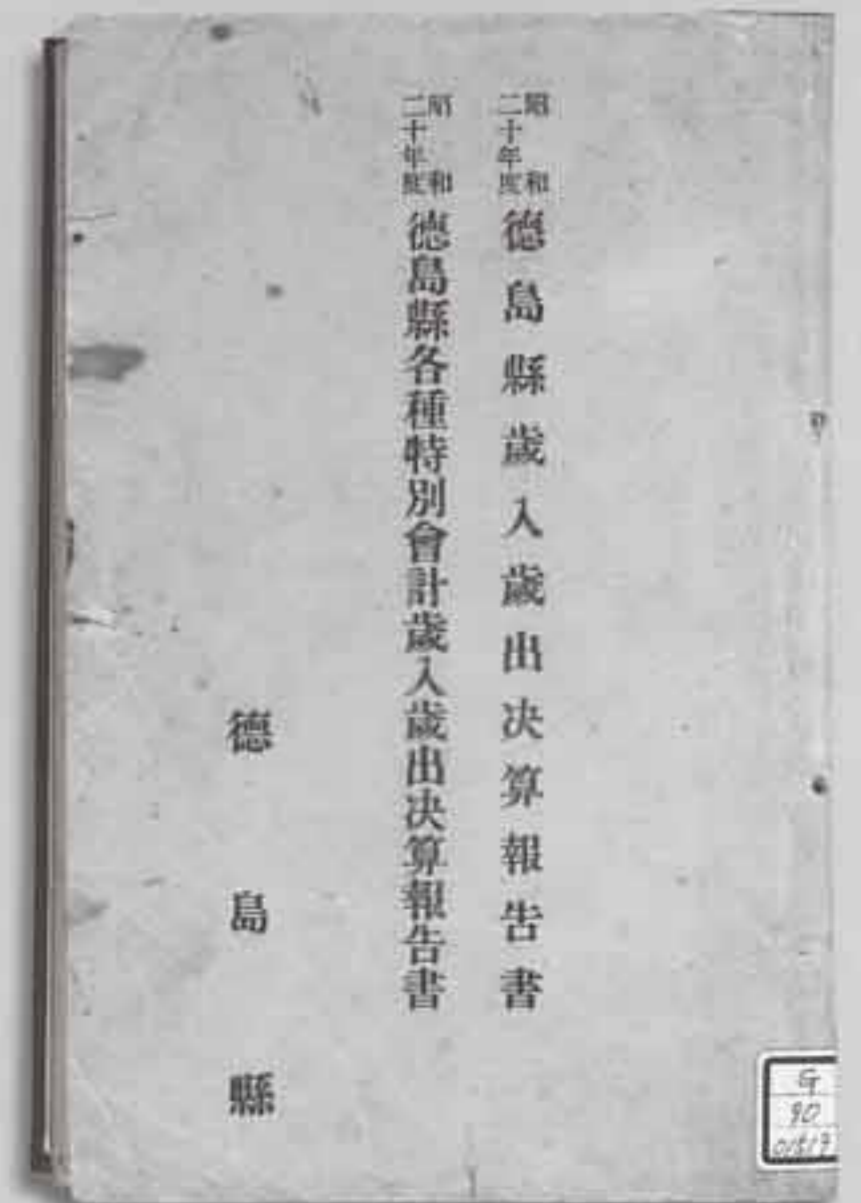 昭和二十年度 德島縣歲入歲出決算報告書
昭和二十年度 德島縣各種特別會計歲入歲出決算報告書
德島縣
G
90